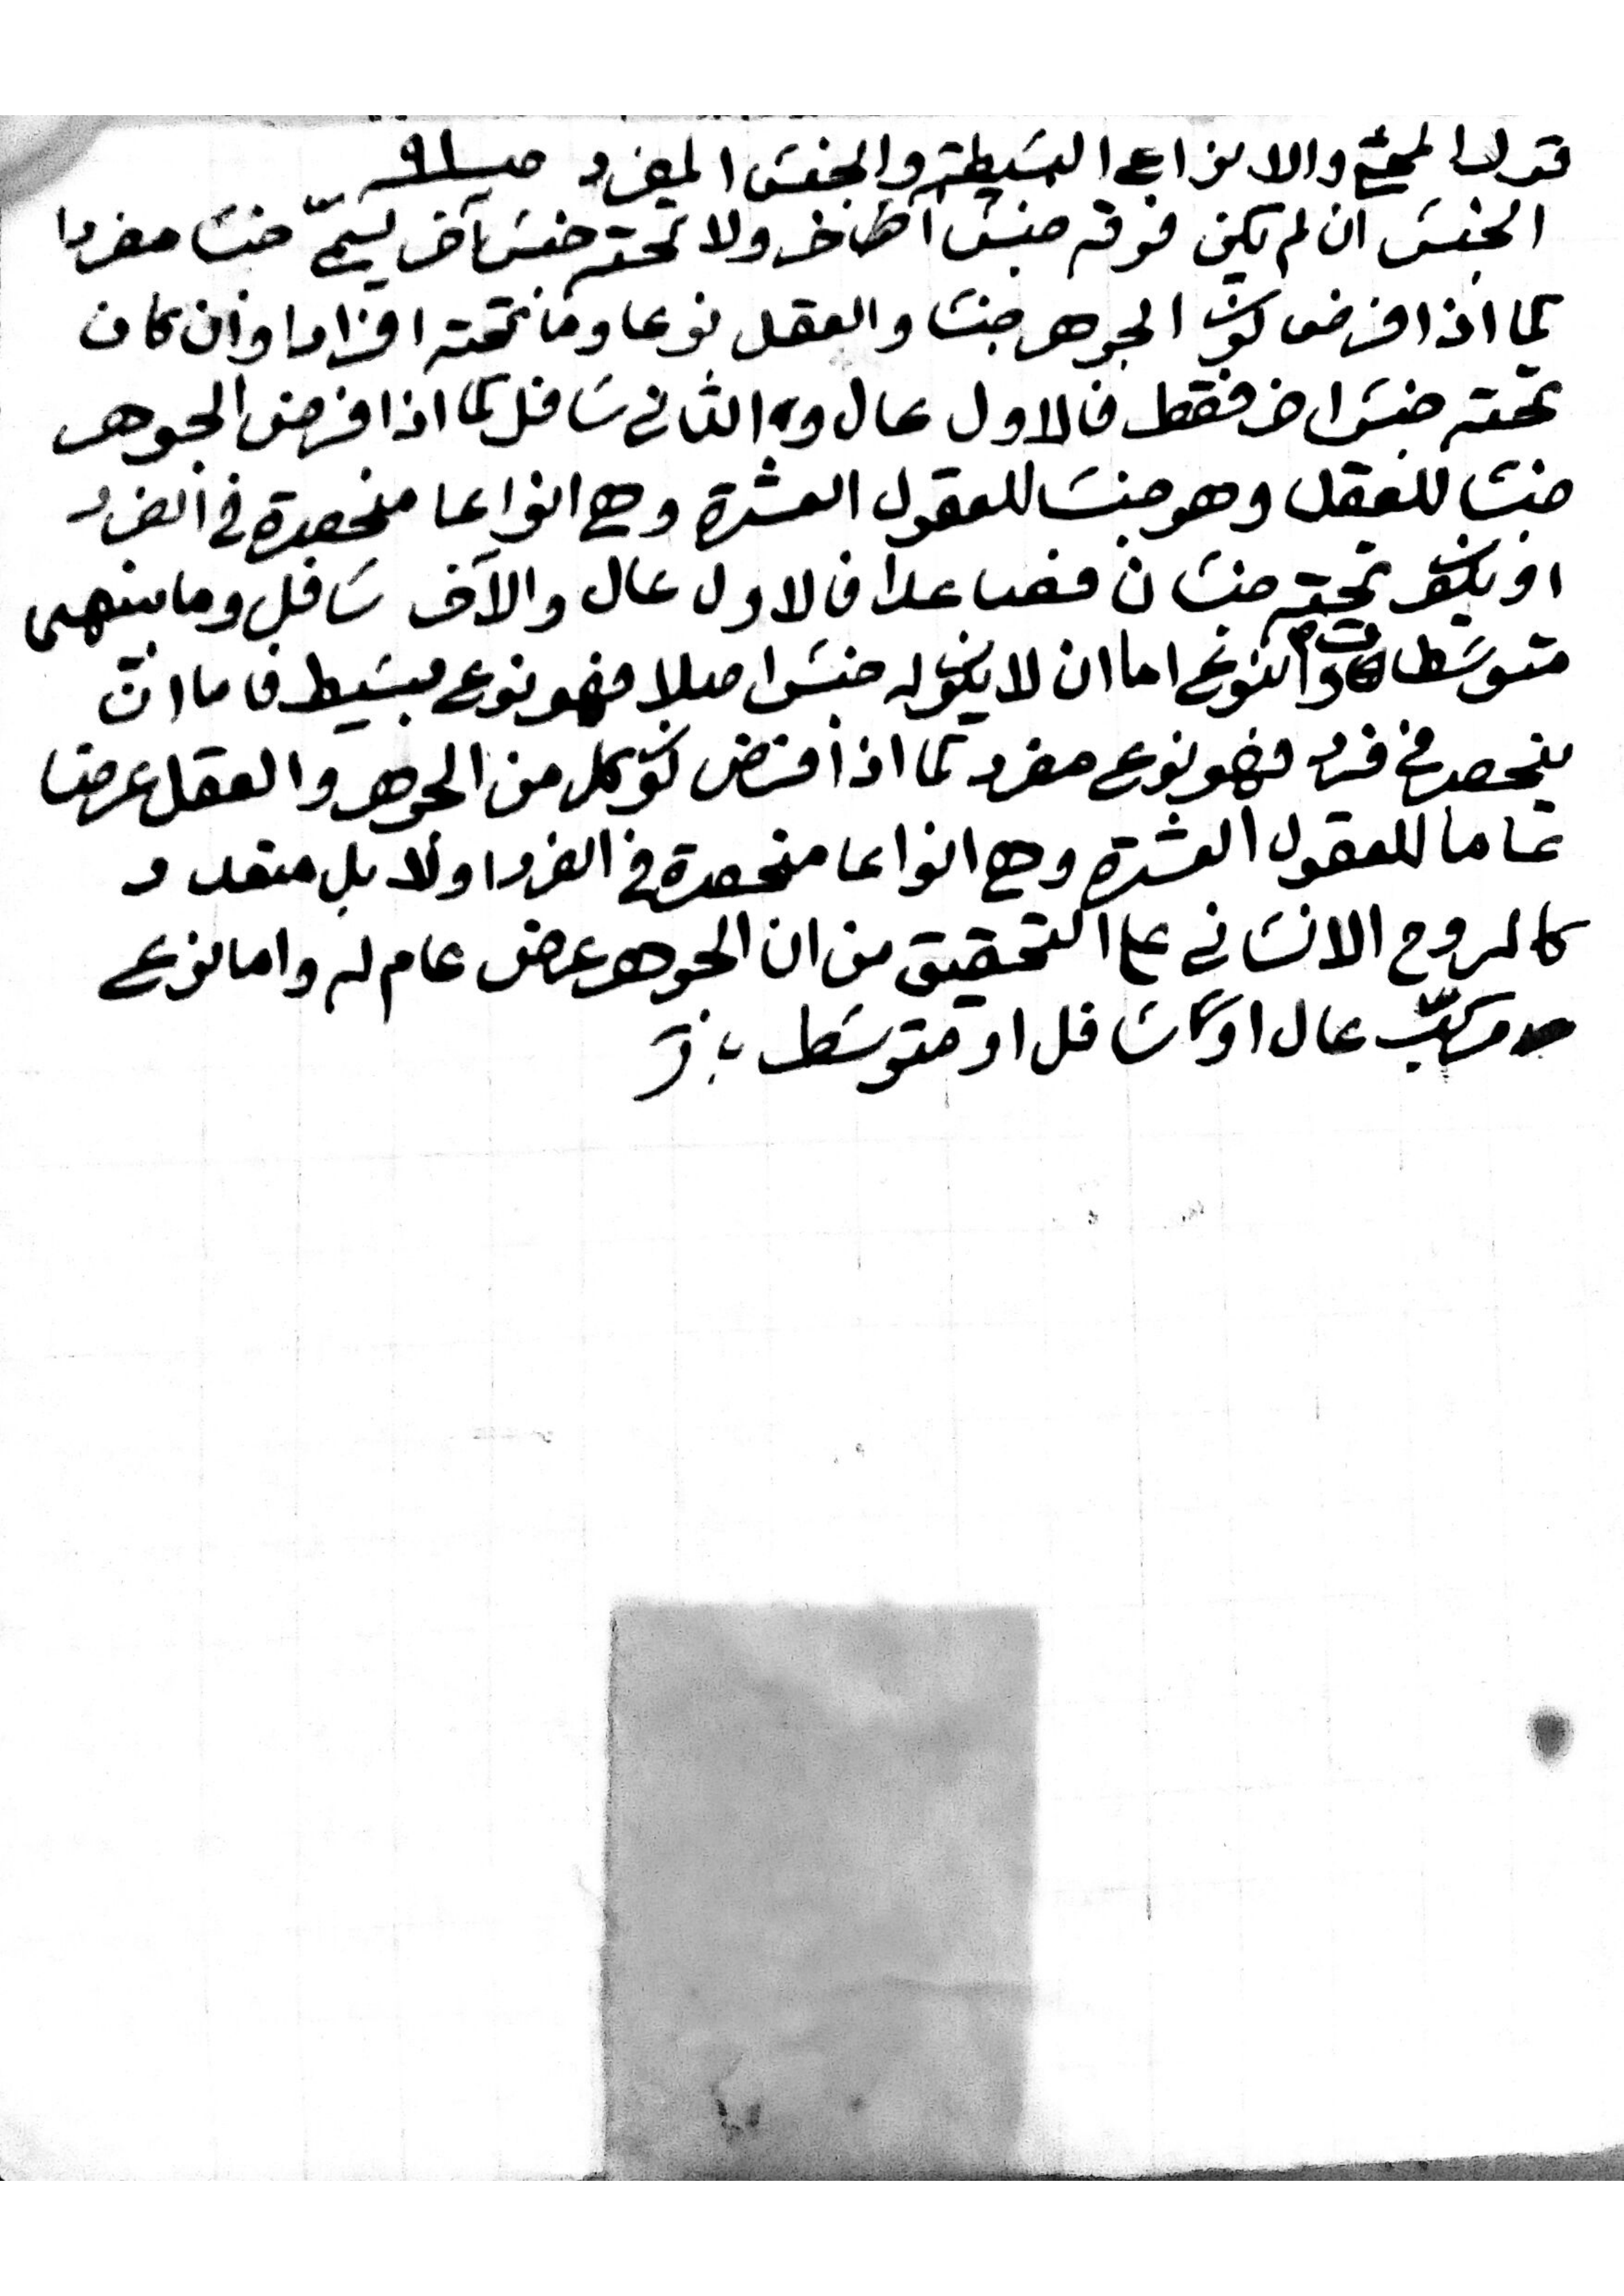 قول المحشي والانواع البسيطة والجنس المفرد صـ ٩١
الجنس ان لم يكن فوقه جنس آخر ولا تحته جنس آخر يسمّى جنسا مفردا
كما اذا فرض كون الجوهر جنسا والعقل نوعا وما تحته افرادا وان كان
تحته جنس اخر فقط فالاول عال والثاني سافل كما اذا فرض الجوهر
جنسا للعقل وهو جنسا للعقول العشرة وهي انواعا منحصرة في الفرد
او يكون تحته جنسان فصاعدا فالاول عال والآخر سافل وما بينهمى
متوسطا والنوع اما ان لا يكون له جنس اصلا فهو نوع بسيط فاما انّ
ينحصر في فرد فهو نوع مفرد كما اذا فرض كون كل من الجوهر والعقل عرضا
عاما للعقول العشرة وهي انواعا منحصرة في الفرد اولا بل متعدد
كالروح الانساني على التحقيق من ان الجوهر عرض عام له واما نوع
مركّب عال او سافل او متوسط